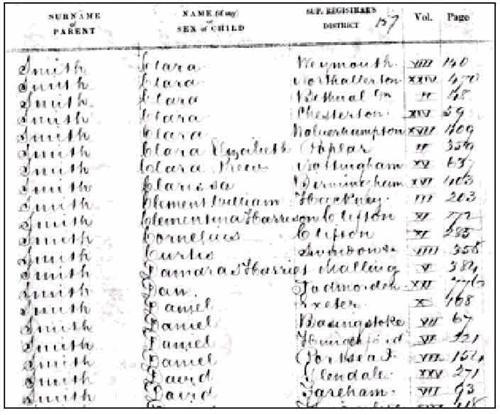 SURNAME OF PARENT NAME (if any) OR SEX OF CHILD SUP. REGISTRAR'S DISTRICT 157 Vol. Page
Smith Clara Weymouth VIII 140
Smith Clara Northallerton XXIV 470
Smith Clara Bethnal Gn II 48
Smith Clara Chesterton XIV 59
Smith Clara Wolverhampton XVII 409
Smith Clara Elizabeth Poplar II 354
Smith Clara Nottingham XV
Smith Clarissa Birmingham XVI 403
Smith Clement William Hackney III 203
Smith Clementina Harrison Clifton XI 772
Smith Cornelius Clifton XI 285
Smith Curtis 358
Smith Damaras Harriet Malling V 384
Smith Dan. Todmorden XXII
Smith Daniel Exeter X 168
Smith Daniel Basingstoke VII 67
Smith Daniel 221
Smith Daniel Portsea I. VII 152
Smith David Glendale XXV 271
Smith David Fareham VII 93